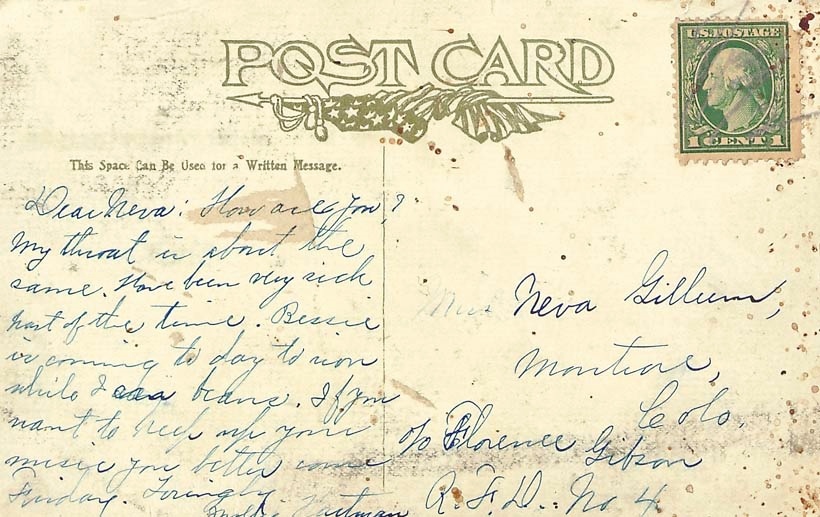 POST CARD
U.S. POSTAGE
1 CENT 1
This Space Can Be Used for a Written Message.
Dear Neva: How are you?
My throat is about the
same. Have been very sick
part of the time. Bessie
is coming to day to iron
while I can beans. If you
want to keep up your
music you better come
Friday. Lovingly
Hartman
Miss Neva Gilleum,
Montrose,
Colo.
c/o Florence Gibson
R. F. D. No 4